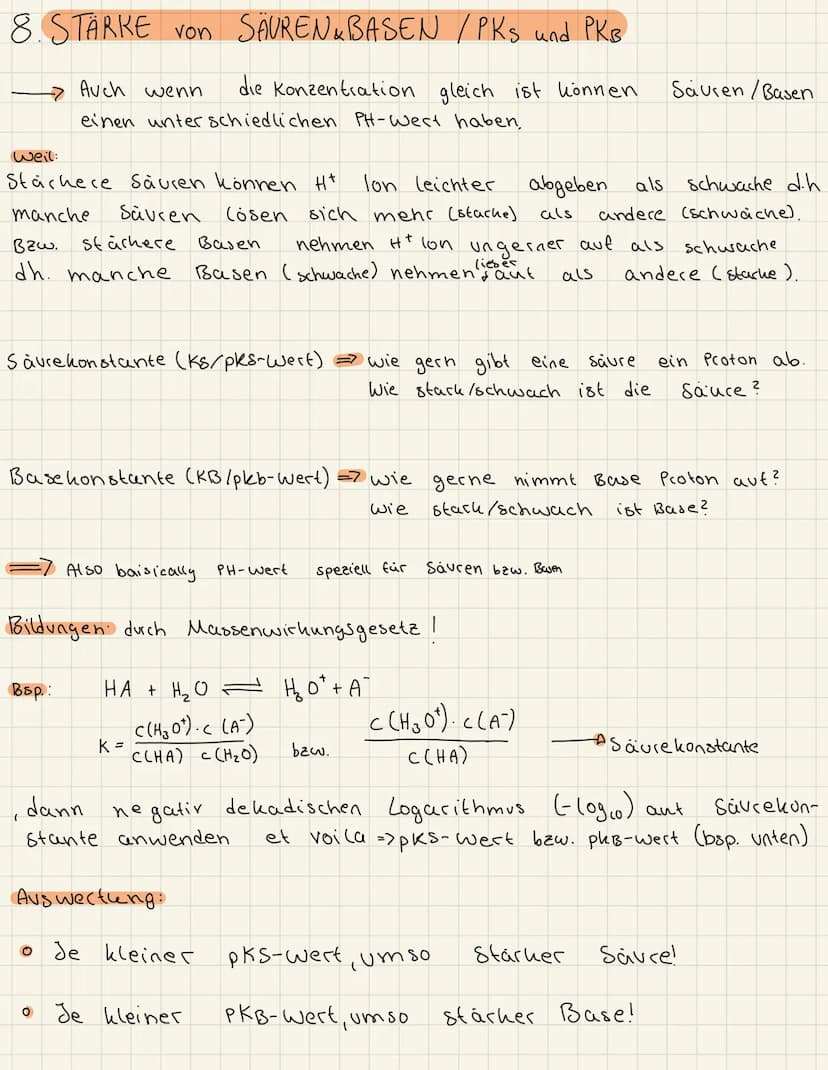 8. STÄRKE von SÄUREN & BASEN / PKs und PKB
→ Auch wenn die Konzentration gleich ist können Säuren / Basen
einen unterschiedlichen PH-Wert haben.
Weil:
Stärkere Säuren können H⁺ Ion leichter abgeben als schwache d.h
manche Säuren lösen sich mehr (starke) als andere (schwäche).
Bzw. stärkere Basen nehmen H⁺ Ion ungerner auf als schwache
dh. manche Basen (schwache) nehmen lieber auf als andere (starke).
Säurekonstante (KS/pKS-Wert) => wie gern gibt eine säure ein Proton ab.
Wie stark/schwach ist die Säure?
Basekonstante (KB/pkb-Wert) => wie gerne nimmt Base Proton auf?
wie stark/schwach ist Base?
=> Also baisically PH-Wert speziell für Säuren bzw. Basen
Bildungen: durch Massenwirkungsgesetz!
Bsp.: HA + H₂O ⇌ H₃O⁺ + A⁻
K = c(H₃O⁺) · c(A⁻) / c(HA) c(H₂O) bzw. c(H₃O⁺) · c(A⁻) / c(HA) → Säurekonstante
, dann negativ dekadischen Logarithmus (-log₁₀) auf Säurekon-
stante anwenden et voila => pKS-Wert bzw. pKB-Wert (bsp. unten)
Auswertung:
o Je kleiner pKS-Wert, umso stärker Säure!
o Je kleiner PKB-Wert, umso stärker Base!